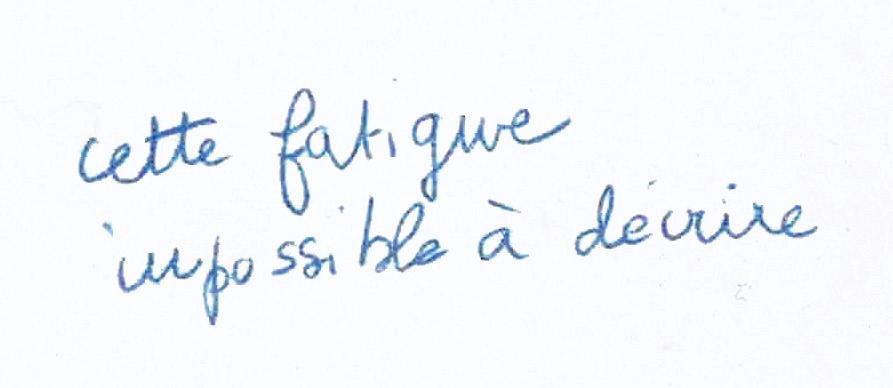 cette fatigue
impossible à décrire